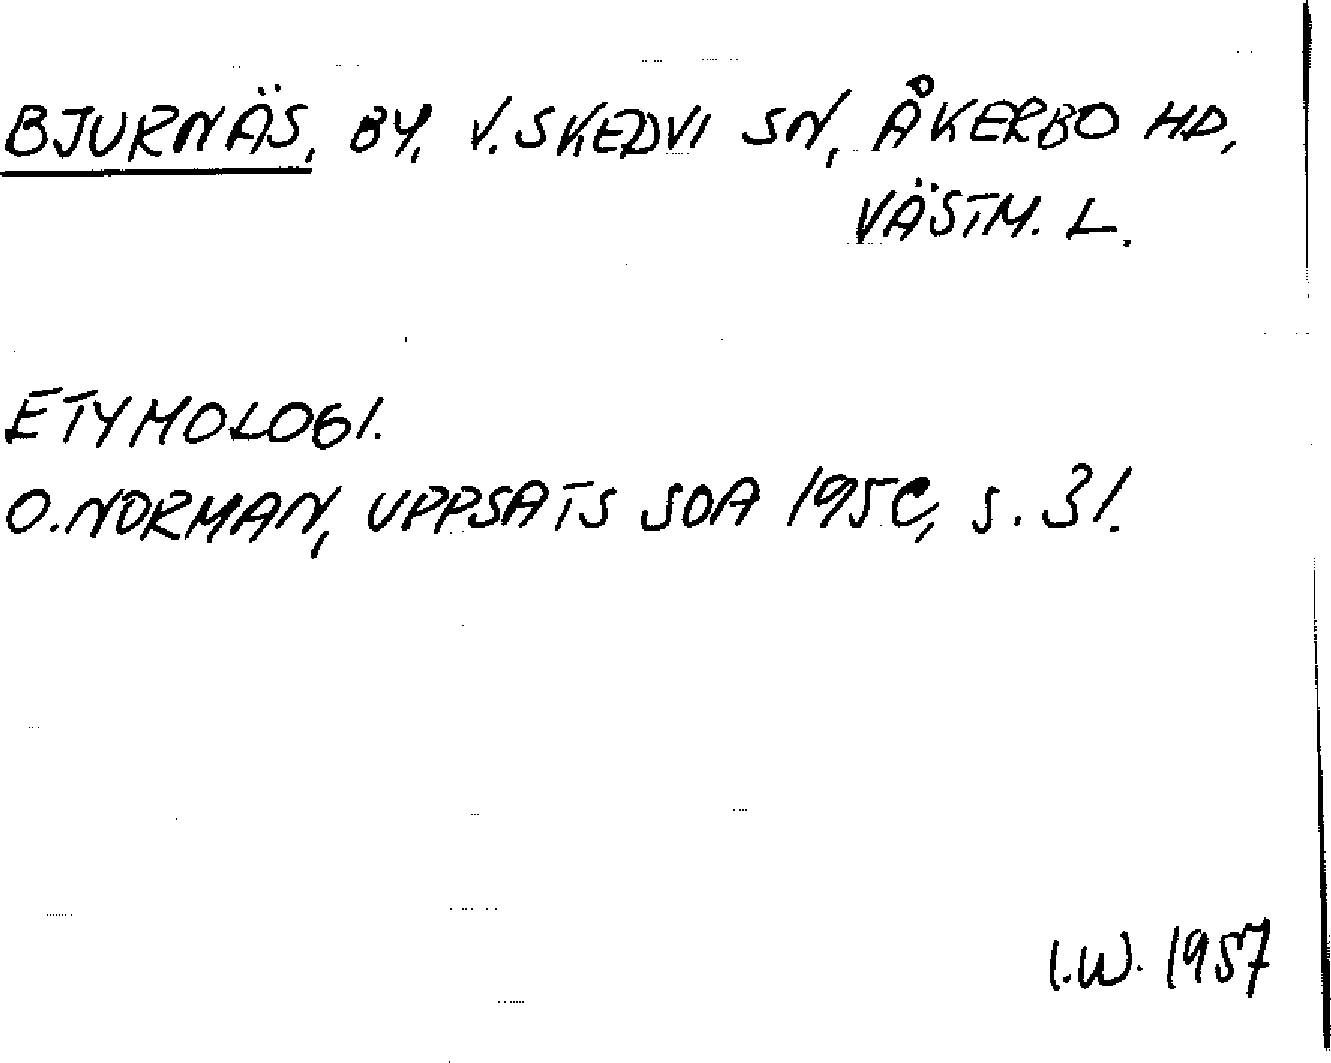 BJURNÄS, BY, V. SKEDVI SN, ÅKERBO HD,
VÄSTM. L.
ETYMOLOGI.
O. NORMAN, UPPSATS SOA 1950, s. 31.
I.W. 1957